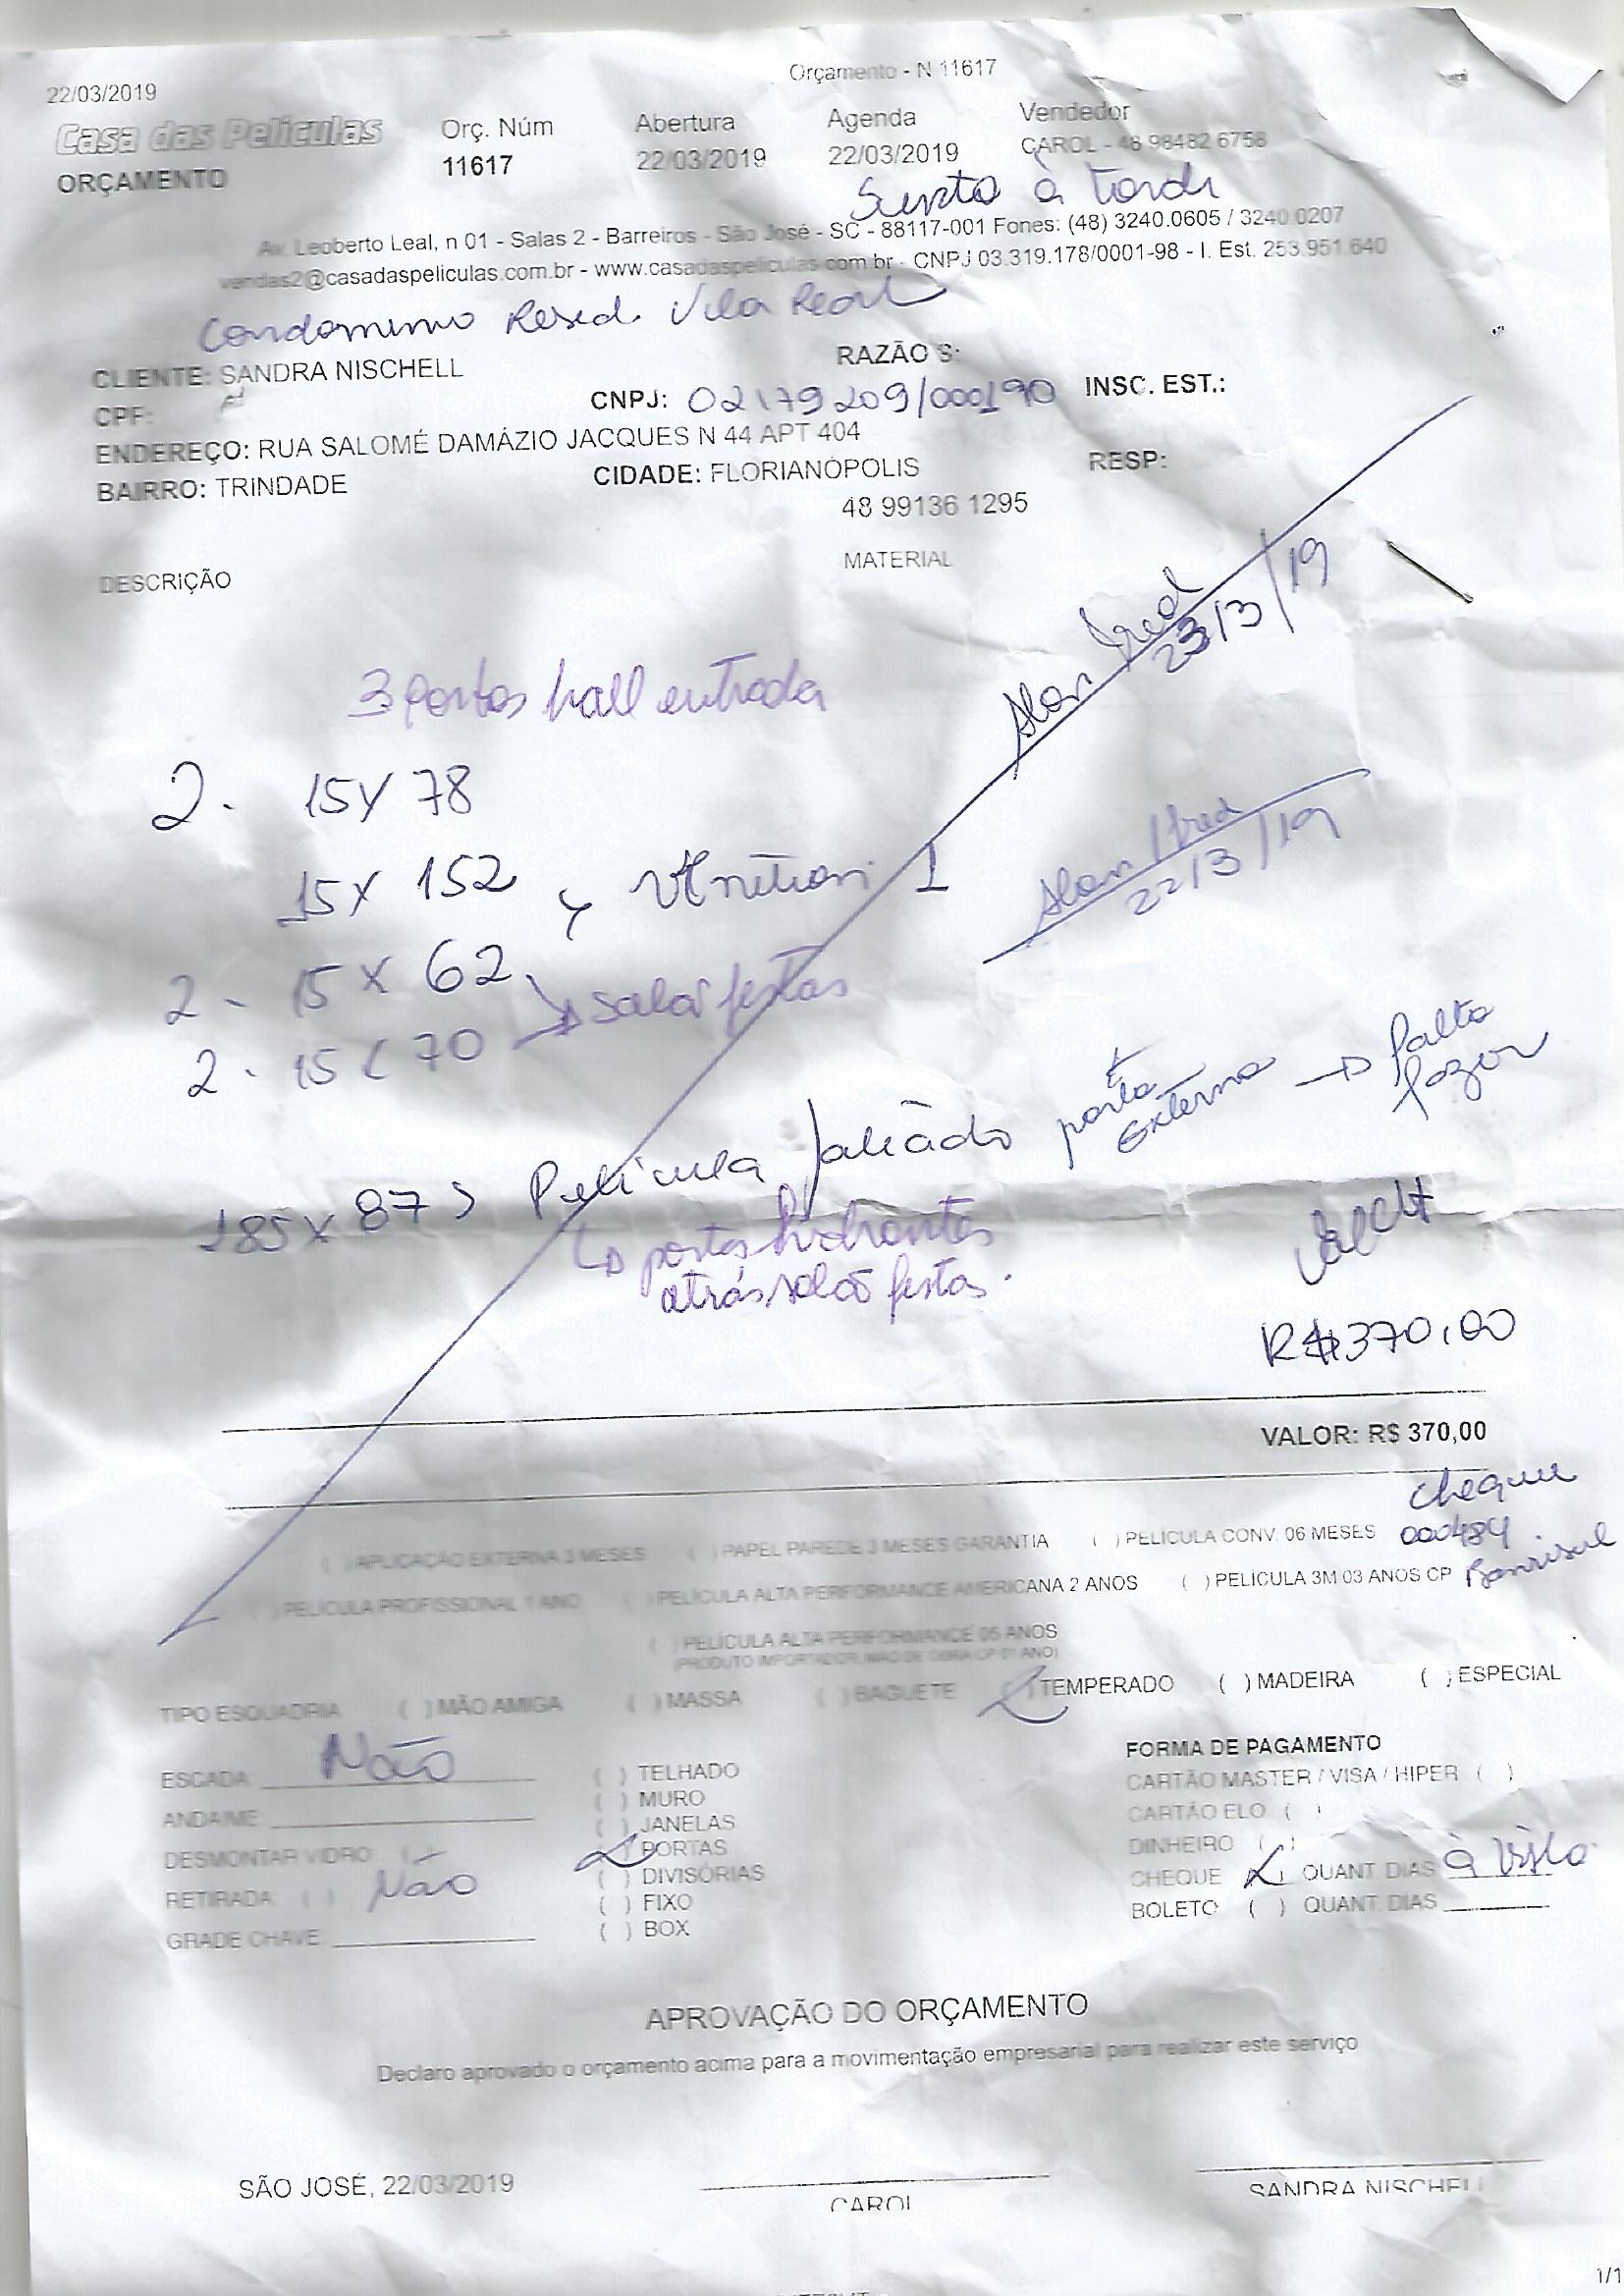 Orçamento - N 11617
22/03/2019
Casa das Películas
ORÇAMENTO
Orç. Núm
11617
Abertura
22/03/2019
Agenda
22/03/2019
Vendedor
CAROL - 48 98482 6758
Sexta à tarde
Av. Leoberto Leal, n 01 - Salas 2 - Barreiros - São José - SC - 88117-001 Fones: (48) 3240.0605 / 3240.0207
vendas2@casadaspeliculas.com.br - www.casadaspeliculas.com.br - CNPJ 03.319.178/0001-98 - I. Est. 253.951.640
Condominio Resid. Vila Real
CLIENTE: SANDRA NISCHELL
RAZÃO S:
CPF:
CNPJ: 02179209/000190
INSC. EST.:
ENDEREÇO: RUA SALOMÉ DAMÁZIO JACQUES N 44 APT 404
BAIRRO: TRINDADE
CIDADE: FLORIANÓPOLIS
RESP:
48 99136 1295
DESCRIÇÃO
MATERIAL
Alan Fred
23/3/19
3 portas hall entrada
2. 15x 78
15x 152
Alan / Fred
22/3/19
2 - 15 x 62
salão festas
2 - 15 x 70
185x 87 > Película jateado
porta externa → falta fazer
↳ portas hidrantes
atrás salão festas.
R$ 370,00
VALOR: R$ 370,00
cheque
000484
Banrisul
( ) APLICAÇÃO EXTERNA 3 MESES ( ) PAPEL PAREDE 3 MESES GARANTIA ( ) PELÍCULA CONV. 06 MESES
( ) PELÍCULA PROFISSIONAL 1 ANO ( ) PELÍCULA ALTA PERFORMANCE AMERICANA 2 ANOS ( ) PELÍCULA 3M 03 ANOS CP
( ) PELÍCULA ALTA PERFORMANCE 05 ANOS
(PRODUTO IMPORTADOR, MAO DE OBRA CP 01 ANO)
TIPO ESQUADRIA ( ) MÃO AMIGA ( ) MASSA ( ) BAGUETE ( ) TEMPERADO ( ) MADEIRA ( ) ESPECIAL
ESCADA: Não
ANDAIME:
DESMONTAR VIDRO ( )
RETIRADA ( ) Não
GRADE CHAVE:
( ) TELHADO
( ) MURO
( ) JANELAS
( ) PORTAS
( ) DIVISÓRIAS
( ) FIXO
( ) BOX
FORMA DE PAGAMENTO
CARTÃO MASTER / VISA / HIPER ( )
CARTÃO ELO ( )
DINHEIRO ( )
CHEQUE ( ) QUANT. DIAS à vista
BOLETO ( ) QUANT. DIAS
APROVAÇÃO DO ORÇAMENTO
Declaro aprovado o orçamento acima para a movimentação empresarial para realizar este serviço
SÃO JOSÉ, 22/03/2019
CAROL
SANDRA NISCHELL
1/1